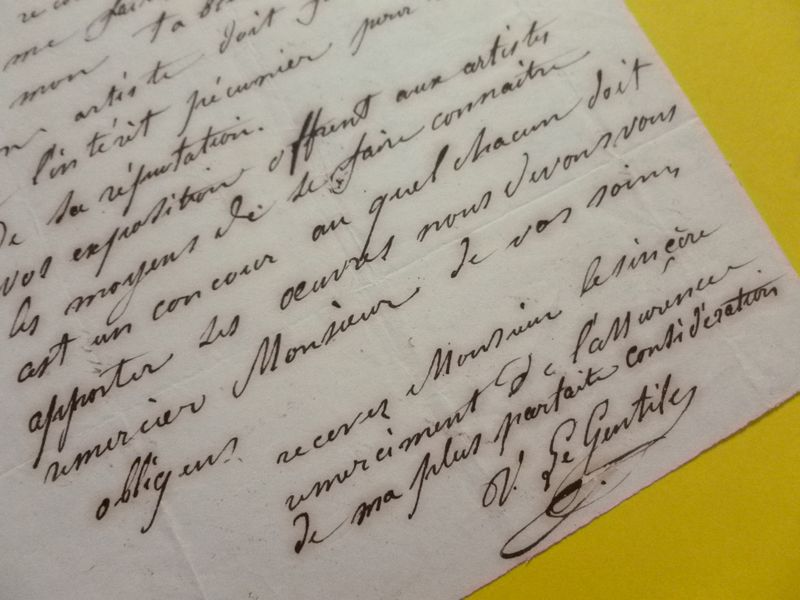 me fair
mon ta
artiste doit
l'intérêt pécunier pour
de sa réputation.
vos exposition offrent aux artistes
les moyens de se faire connaitre
est un concour au quel chacun doit
apporter ses œuvres nous devons vous
remercier Monsieur de vos soins
obligens recevez Monsieur le sinçère
remerciment de l'assurence
de ma plus parfaite considération
V. Le Gentile